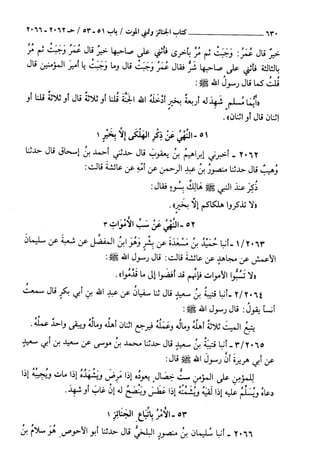 ٦٣٠ ــــــــ كتاب الجنائز وتمني الموت / باب ٥١ - ٥٣ / حـ ٢٠٦٢ - ٢٠٦٦
خيرٌ قال عُمَرُ: وَجَبَتْ ثم مُرَّ بأخرى فأثني على صاحبها خيرٌ قال عُمَرُ وَجَبَتْ ثم مُرَّ
بالثالثة فأثني على صاحبها شرٌّ فقال عُمَرُ وَجَبَتْ قال وما وَجَبَتْ يا أميرَ المؤمنين قال
قُلتُ كما قال رسول الله ﷺ:
«أيُّما مُسلمٍ شَهِدَ له أربعةٌ بخيرٍ أدْخَلَهُ الله الجنَّةَ قُلنا أو ثلاثةٌ قال أو ثلاثة قلنا أو
إثنان قال أو اثنان».
٥١ - النَّهْيُ عَنْ ذِكْرِ الهَلْكَى إلَّا بِخَيْرٍ ١
٢٠٦٢ - أخبرني إبراهيمُ بنُ يعقوبَ قال حدثني أحمد بنُ إسحاق قال حدثنا
وُهيبٌ قال حدثنا منصورُ بنُ عبدِ الرحمن عن أمّهِ عن عائشةَ قالت:
ذُكِرَ عندَ النبي ﷺ هَالِكٌ بِسُوءٍ فقال:
«لا تذكروا هلكاكم إلَّا بخيرٍ».
٥٢ - النَّهْيُ عَنْ سَبِّ الأَمْوَاتِ ٣
١/٢٠٦٣ - أنبا حُمَيْدُ بنُ مَسْعَدَةَ عن بِشْرٍ وهُوَ ابنُ المفضّل عن شعبةَ عن سليمانَ
الأعمش عن مجاهدٍ عن عائشةَ قالت: قال رسول الله ﷺ:
«لا تَسُبُّوا الأمواتَ فإنَّهم قد أفضَوا إلى ما قَدَّمُوا».
٢/٢٠٦٤ - أنبا قتيبةُ بنُ سعيدٍ قال ثنا سفيانُ عن عبدِ الله بنِ أبي بكرٍ قال سمعتُ
أنساً يقول: قال رسول الله ﷺ:
يتبعُ الميتَ ثلاثةٌ أهلُهُ ومالُه وعَمَلُهُ فيرجع اثنان أهلُه ومالُه ويبقى واحدٌ عملُه.
٣/٢٠٦٥ - أنبا قتيبةُ بنُ سعيدٍ قال حدثنا محمد بنُ موسى عن سعيدِ بن أبي سعيدٍ
عن أبي هريرةَ أنَّ رسولَ الله ﷺ قال:
للمؤمنِ على المؤمنِ ستُّ خصالٍ يعودُه إذا مَرِضَ ويَشْهَدُهُ إذا مات ويُجِيبُهُ إذا
دعاهُ ويُسَلِّمُ عليه إذا لَقيَهُ ويُشَمِّتُهُ إذا عَطَسَ ويَنْصَحُ له إنْ غابَ أو شَهِدَ.
٥٣ - الأَمْرُ بِاتِّبَاعِ الجَنَائِزِ ١
٢٠٦٦ - أنبا سُليمان بنُ منصورٍ البلخيُّ قال حدثنا أبو الأحوصِ هُوَ سلامُ بنُ